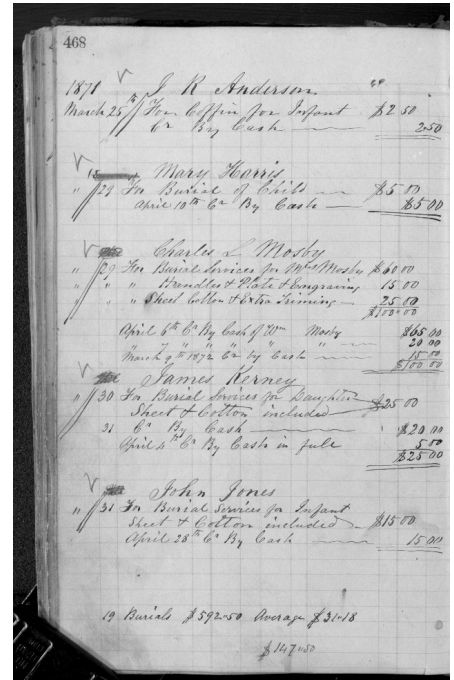 468
1871 J K Anderson
March 25th For Coffin for Infant $2 50
Cr By Cash 2.50
Mary Harris
" 29 For Burial of Child $5 00
April 10th Cr By Cash $5 00
Charles L Mosby
" 29 For Burial Services for Mrs Mosby $60 00
" " " Handles & Plate & Engraving 15 00
" " Sheet Cotton & Extra Triming 25 00
$100.00
April 6th Cr By Cash of Wm Mosby $65 00
" 7 " " " " " 20 00
March 9th 1872 Cr by Cash 15 00
$100 00
James Kerney
" 30 For Burial Services for Daughter
Sheet & Cotton included $25 00
31 Cr By Cash $20 00
April 4th Cr By Cash in full 5 00
$25 00
John Jones
" 31 For Burial Services for Infant
Sheet & Cotton included $15 00
April 28th Cr By Cash 15 00
19 Burials $592.50 Average $31.18
$147.50